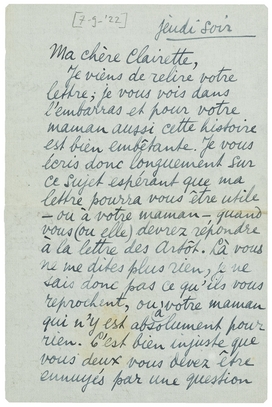 [7-9-'22]
jeudi soir
Ma chère Clairette,
Je viens de relire votre
lettre; je vous vois dans
l'embarras et pour votre
maman aussi cette histoire
est bien embêtante. Je vous
écris donc longuement sur
ce sujet espérant que ma
lettre pourra vous être utile
– ou à votre maman –, quand
vous (ou elle) devrez répondre
à la lettre des Artôt. Là vous
ne me dites plus rien, je ne
sais donc pas ce qu'ils vous
reprochent, ou à votre maman
qui n'y est absolument pour
rien. C'est bien injuste que
vous deux vous devez être
ennuyés par une question